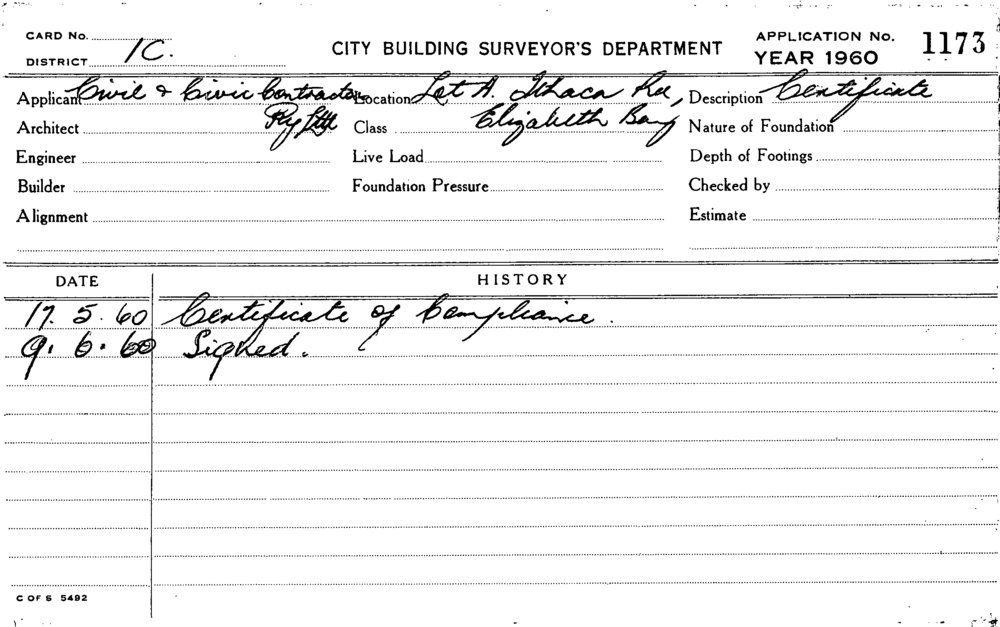 CARD No.
DISTRICT 1C.
CITY BUILDING SURVEYOR'S DEPARTMENT
APPLICATION No. 1173
YEAR 1960
Applicant Civil & Civic Contractors Location Lot A. Ithaca Rd, Description Certificate
Architect Pty Ltd Class Elizabeth Bay Nature of Foundation
Engineer Live Load Depth of Footings
Builder Foundation Pressure Checked by
Alignment Estimate
DATE HISTORY
17. 5. 60 Certificate of Compliance.
9. 6. 60 Signed.
C OF S 5492